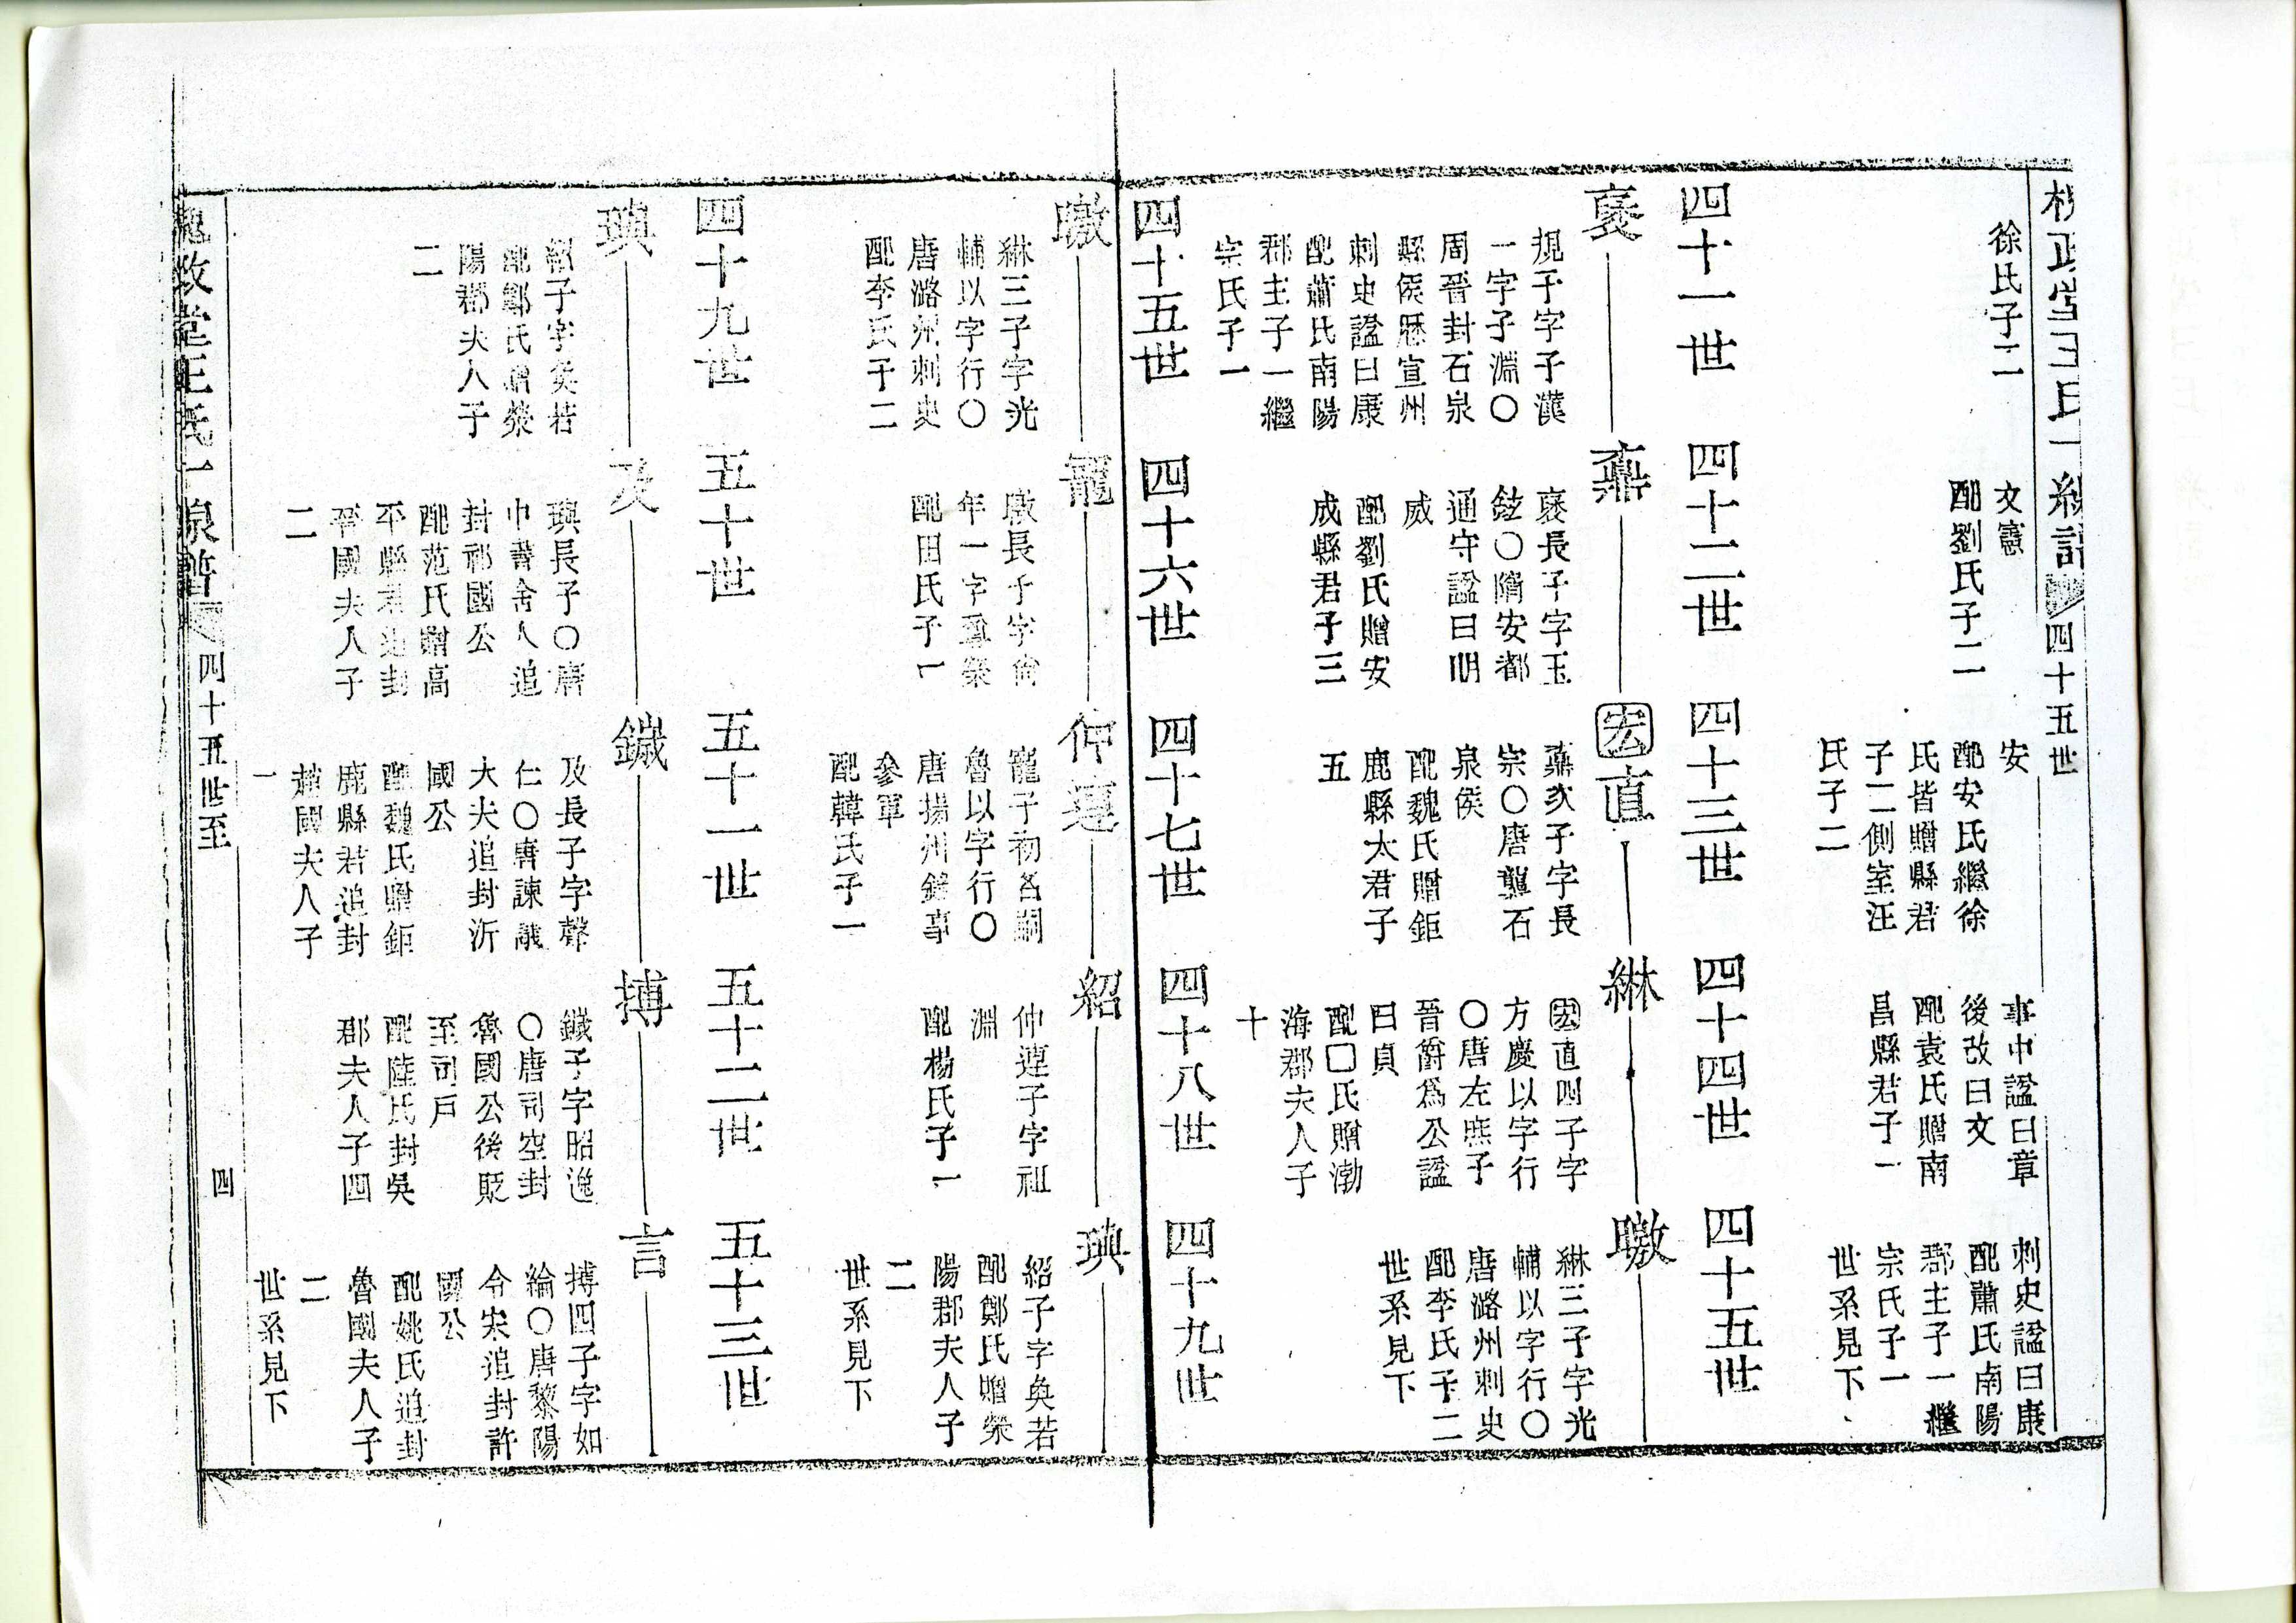 槐政堂王氏一線譜 四十五世
徐氏子二
文憲
配劉氏子二
安
配安氏繼徐
氏皆贈縣君
子二側室汪
氏子二
事中諡曰章
後改曰文
配袁氏贈南
昌縣君子一
刺史諡曰康
配蕭氏南陽
郡主子一繼
宗氏子一
世系見下
四十一世 四十二世 四十三世 四十四世 四十五世
襃
規子字子漢
一字子淵〇
周晉封石泉
縣侯歷宣州
刺史諡曰康
配蕭氏南陽
郡主子一繼
宗氏子一
鼒
襃長子字玉
鉉〇隋安都
通守諡曰明
威
配劉氏贈安
成縣君子三
宏直
鼒次子字長
宗〇唐襲石
泉侯
配魏氏贈鉅
鹿縣太君子
五
綝
宏直四子字
方慶以字行
〇唐左庶子
晉爵爲公諡
曰貞
配□氏贈渤
海郡夫人子
十
曒
綝三子字光
輔以字行〇
唐潞州刺史
配李氏子二
世系見下
四十五世 四十六世 四十七世 四十八世 四十九世
曒
綝三子字光
輔以字行〇
唐潞州刺史
配李氏子二
寵
曒長子字
年一字
配田氏子一
仲連
寵子初名嗣
魯以字行〇
唐揚州錄事
參軍
配韓氏子一
紹
仲連子字祖
淵
配楊氏子一
璵
紹子字奐若
配鄭氏贈滎
陽郡夫人子
二
世系見下
四十九世 五十世 五十一世 五十二世 五十三世
璵
紹子字奐若
配鄭氏贈滎
陽郡夫人子
二
及
璵長子〇唐
中書舍人追
封祁國公
配范氏贈高
平縣君追封
晉國夫人子
二
鐬
及長子字聲
仁〇唐諫議
大夫追封沂
國公
配魏氏贈鉅
鹿縣君追封
趙國夫人子
一
搏
鐬子字昭逸
〇唐司空封
魯國公後貶
至司戶
配陸氏封吳
郡夫人子四
言
搏四子字如
綸〇唐黎陽
令宋追封許
國公
配姚氏追封
魯國夫人子
二
世系見下
槐政堂王氏一線譜 四十五世至 四